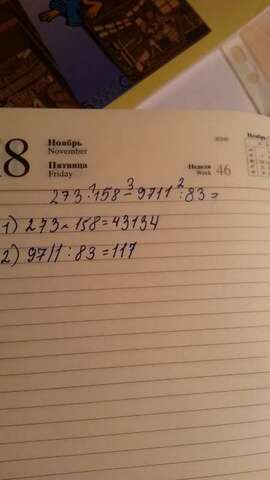 18
Ноябрь
November
Пятница
Friday
Неделя
Week 46
Ноябрь
273·158-9711:83=
1) 273·158=43134
2) 9711:83=117